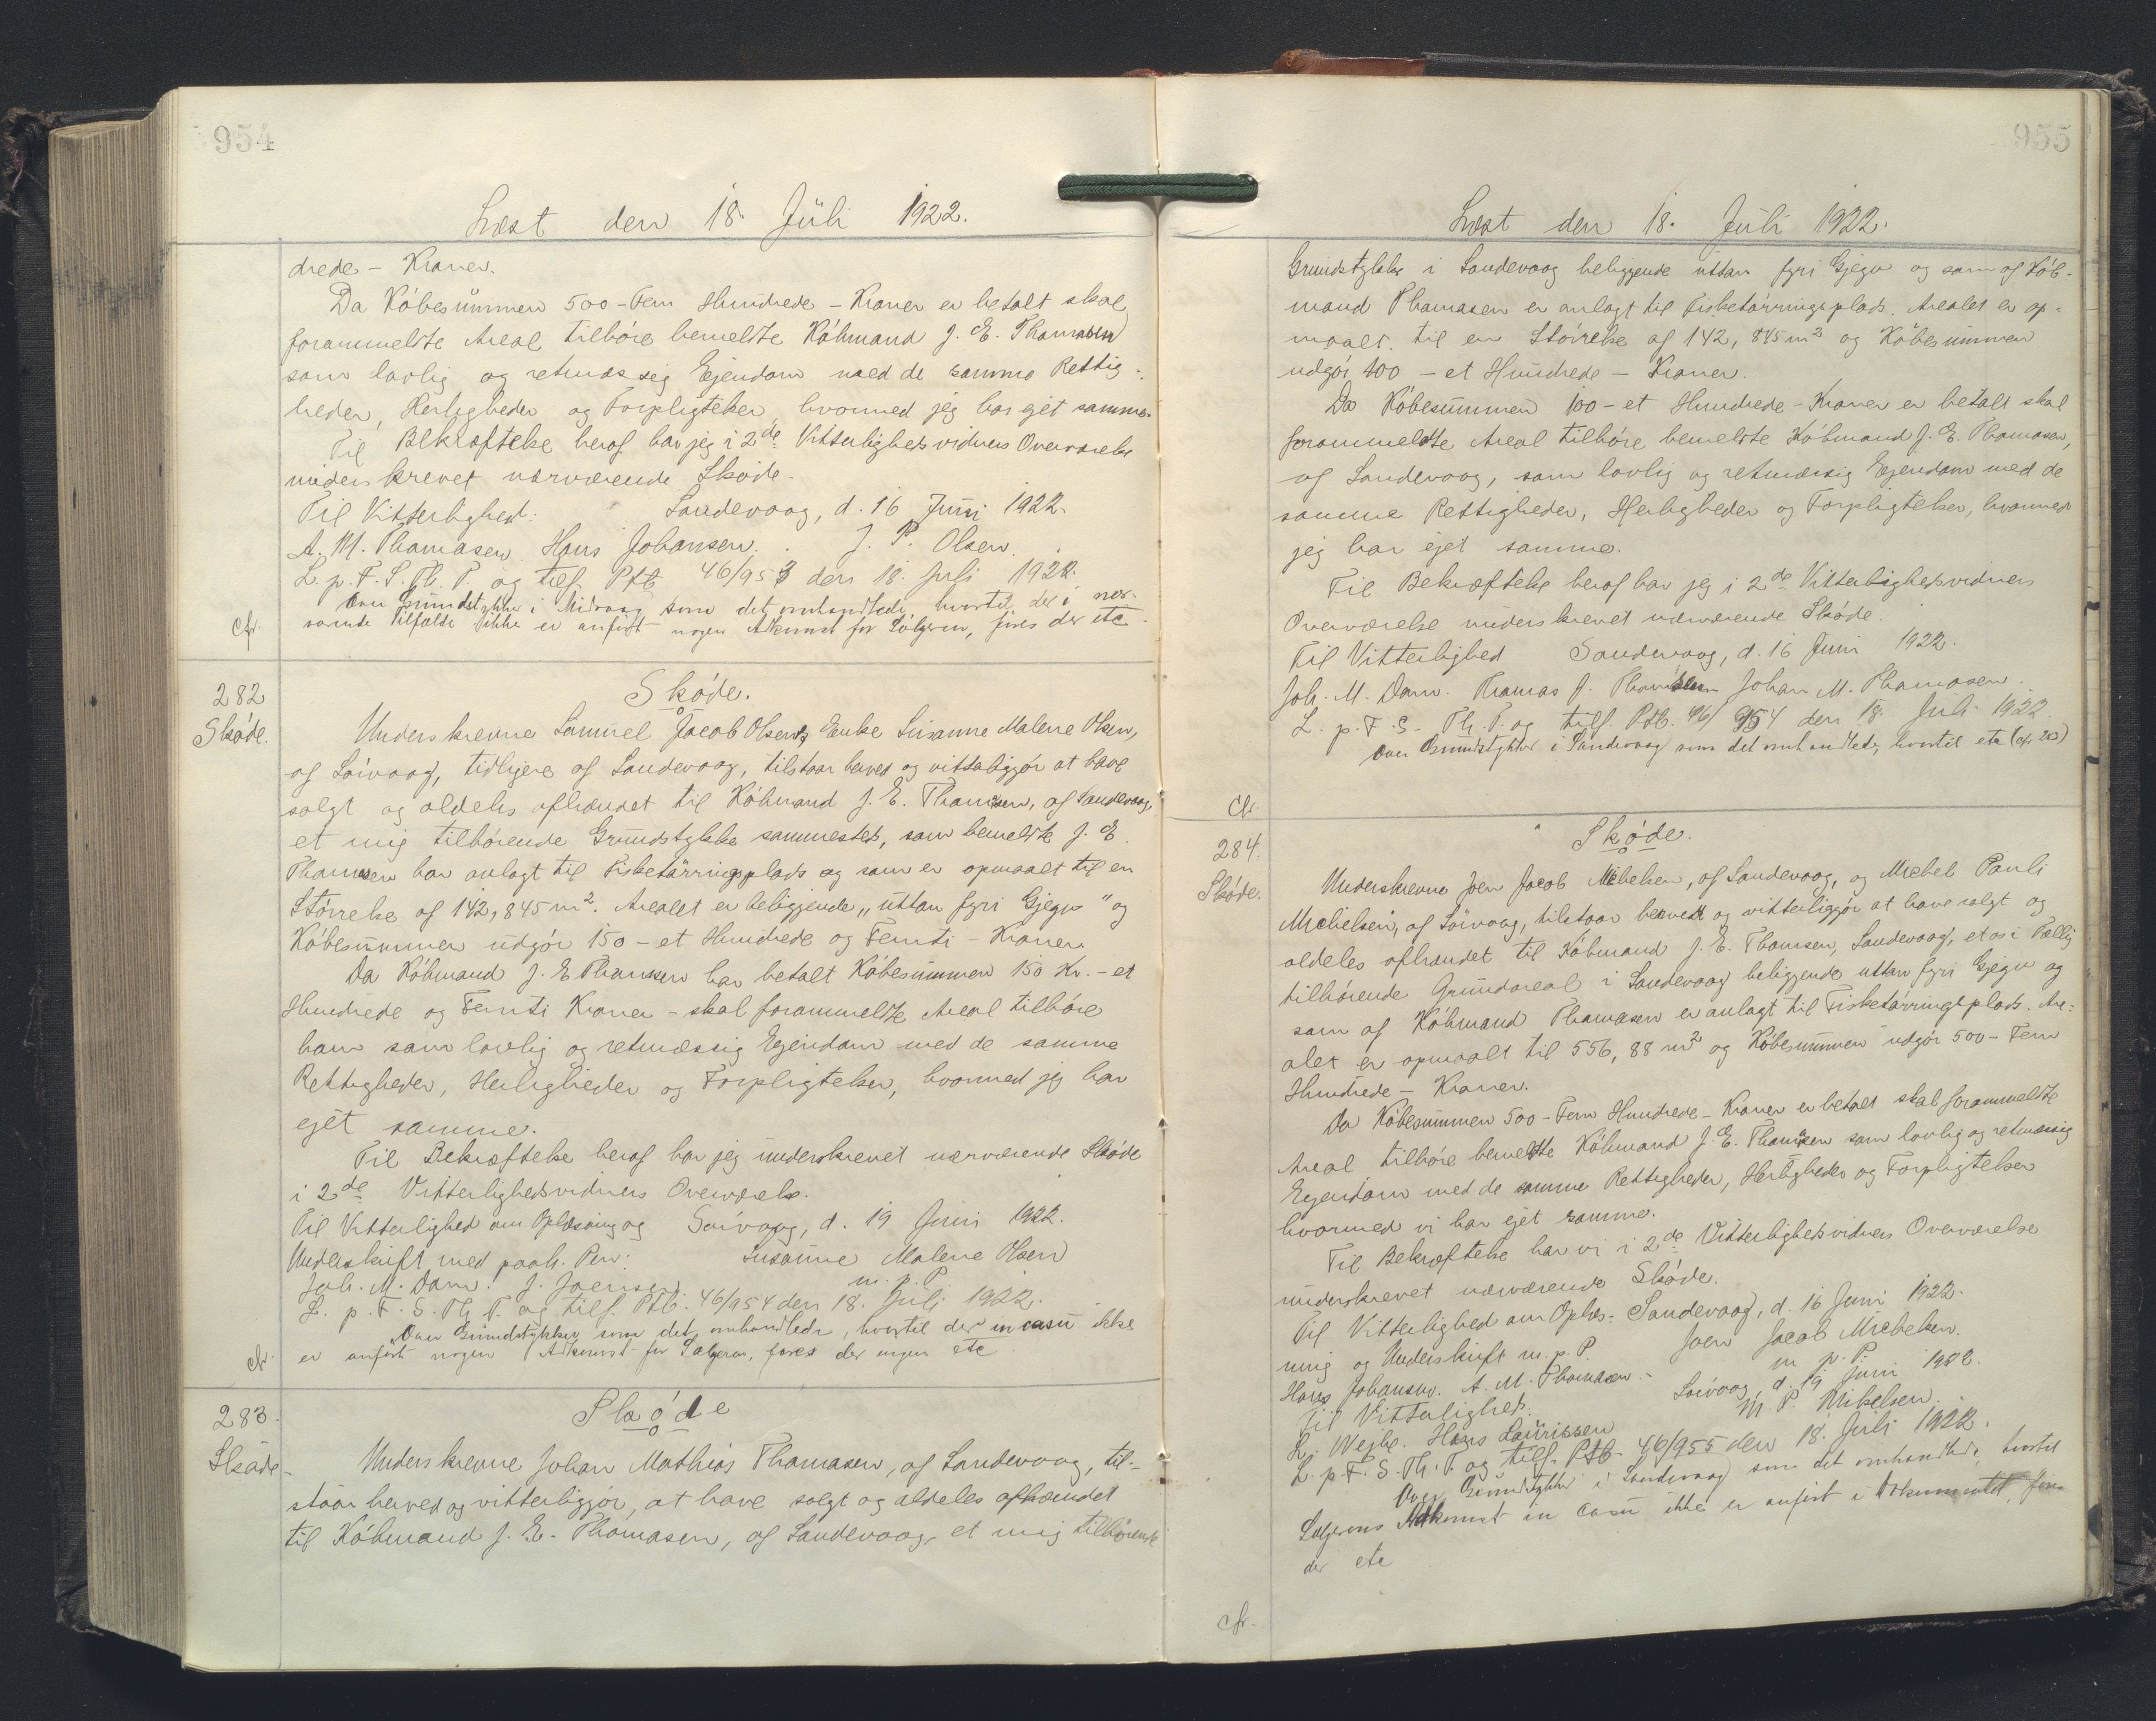 954
Læst den 18. Juli 1922.
drede - Kroner.
Da Köbesummen 500 - Fem Hundrede - Kroner er betalt skal
forammeldte Areal tilhöre bemeldte Köbmand J. E. Thomasen
som lovlig og retmæssig Ejendom med de samme Rettig-
heder, Herligheder og Forpligtelser, hvormed jeg har ejet samme.
Til Bekræftelse heraf har jeg i 2de Vitterlighedsvidners Overværelse
underskrevet nærværende Sköde.
Til Vitterlighed. Sandevaag, d. 16 Juni 1922.
A. M. Thomasen Hans Johansen. J. P. Olsen.
L. p. F. S. Th. T. og tilf. Ptb 46/953 den 18. Juli 1922.
Over Grundstykker i Midvaag som det omhandlede, hvortil der i nær-
værende Tilfælde ikke er anfört nogen Adkomst for Sælgeren, föres der etc
cfr.
282
Sköde.
Sköde.
Underskrevne Samuel Jacob Olsens Enke Susanne Malene Olsen,
af Sörvaag, tidligere af Sandevaag, tilstaar herved og vitterliggör at have
solgt og aldeles afhændet til Köbmand J. E. Thomsen, af Sandevaag,
et mig tilhörende Grundstykke sammesteds, som bemeldte J. E.
Thomsen har anlagt til Fisketörringsplads og som er opmaalt til en
Störrelse af 142,845 m². Arealet er beliggende "uttan fyri Gjegv" og
Köbesummen udgör 150 - et Hundrede og Femti - Kroner.
Da Köbmand J. E. Thomsen har betalt Köbesummen 150 Kr. - et
Hundrede og Femti Kroner - skal forammeldte Areal tilhöre
ham som lovlig og retmæssig Ejendom med de samme
Rettigheder, Herligheder og Forpligtelser, hvormed jeg har
ejet samme.
Til Bekræftelse heraf har jeg underskrevet nærværende Sköde
i 2de Vitterlighedsvidners Overværelse.
Til Vitterlighed om Oplæsning og Sörvaag, d. 19 Juni 1922.
Underskrift med paah. Pen: Susanne Malene Olsen
Joh. M. Dam. J. Joensen m. p. P.
L. p. F. S. Th. T. og tilf. Ptb. 46/954 den 18. Juli 1922.
Over Grundstykker som det omhandlede, hvortil der in casu ikke
er anfört nogen Adkomst for Sælgeren, föres der ingen etc
cfr.
283.
Sköde.
Sköde
Underskrevne Johan Mathias Thomasen, af Sandevaag, til-
staar herved og vitterliggör, at have solgt og aldeles afhændet
til Köbmand J. E. Thomasen, af Sandevaag, et mig tilhörende
955
Læst den 18. Juli 1922.
Grundstykke i Sandevaag beliggende uttan fyri Gjegv og som af Köb-
mand Thomasen er anlagt til Fisketörringsplads. Arealet er op-
maalt til en Störrelse af 142,845 m² og Köbesummen
udgör 100 - et Hundrede - Kroner.
Da Köbesummen 100 - et Hundrede - Kroner er betalt skal
forammeldte Areal tilhöre bemeldte Köbmand J. E. Thomasen,
af Sandevaag, som lovlig og retmæssig Ejendom med de
samme Rettigheder, Herligheder og Forpligtelser, hvormed
jeg har ejet samme.
Til Bekræftelse heraf har jeg i 2de Vitterlighedsvidners
Overværelse underskrevet nærværende Sköde.
Til Vitterlighed Sandevaag, d. 16 Juni 1922.
Joh. M. Dam. Thomas J. Thomsen Johan M. Thomasen.
L. p. F. S. Th. T. og tilf. Ptb. 46/954 den 18. Juli 1922
Over Grundstykker i Sandevaag som det omhandlede, hvortil etc (cfr. 282)
cfr.
284.
Sköde.
Sköde.
Underskrevne Joen Jacob Michelsen, af Sandevaag, og Michel Pauli
Michelsen, af Sörvaag, tilstaar herved og vitterliggör at have solgt og
aldeles afhændet til Köbmand J. E. Thomsen, Sandevaag, et os i Fællig
tilhörende Grundareal i Sandevaag beliggende uttan fyri Gjegv og
som af Köbmand Thomasen er anlagt til Fisketörringsplads. Are-
alet er opmaalt til 556,88 m² og Köbesummen udgör 500 - Fem
Hundrede - Kroner.
Da Köbesummen 500 - Fem Hundrede - Kroner er betalt skal forammeldte
Areal tilhöre bemeldte Köbmand J. E. Thomsen som lovlig og retmæssig
Ejendom med de samme Rettigheder, Herligheder og Forpligtelser
hvormed vi har ejet samme.
Til Bekræftelse har vi i 2de Vitterlighedsvidners Overværelse
underskrevet nærværende Sköde.
Til Vitterlighed om Oplæs- Sandevaag, d. 16 Juni 1922.
ning og Underskrift m. p. P. Joen Jacob Michelsen.
Hans Johansen. A. M. Thomasen. m. p. P.
Til Vitterlighed: Sörvaag, d. 19 Juni 1922.
L. Wejhe. Hans Lauritssen M. P. Mikelsen.
L. p. F. S. Th. T. og tilf. Ptb. 46/955 den 18. Juli 1922.
Over Grundstykker i Sandevaag som det omhandlede, hvortil
Sælgerens Adkomst in casu ikke er anfört i Dokumentet, föres
der etc
cfr.